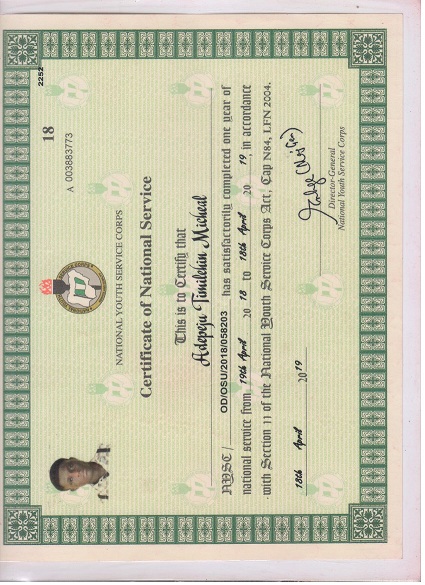 2252
18
A 003883773
NATIONAL YOUTH SERVICE CORPS
Certificate of National Service
This is to Certify that
Adepeju Timilehin Micheal
NYSC/ OD/OSU/2018/058203 has satisfactorily completed one year of
national service from 19th April 20 18 to 18th April 20 19 in accordance
with Section 11 of the National Youth Service Corps Act, Cap N84, LFN 2004.
18th April 2019
Director-General
National Youth Service Corps